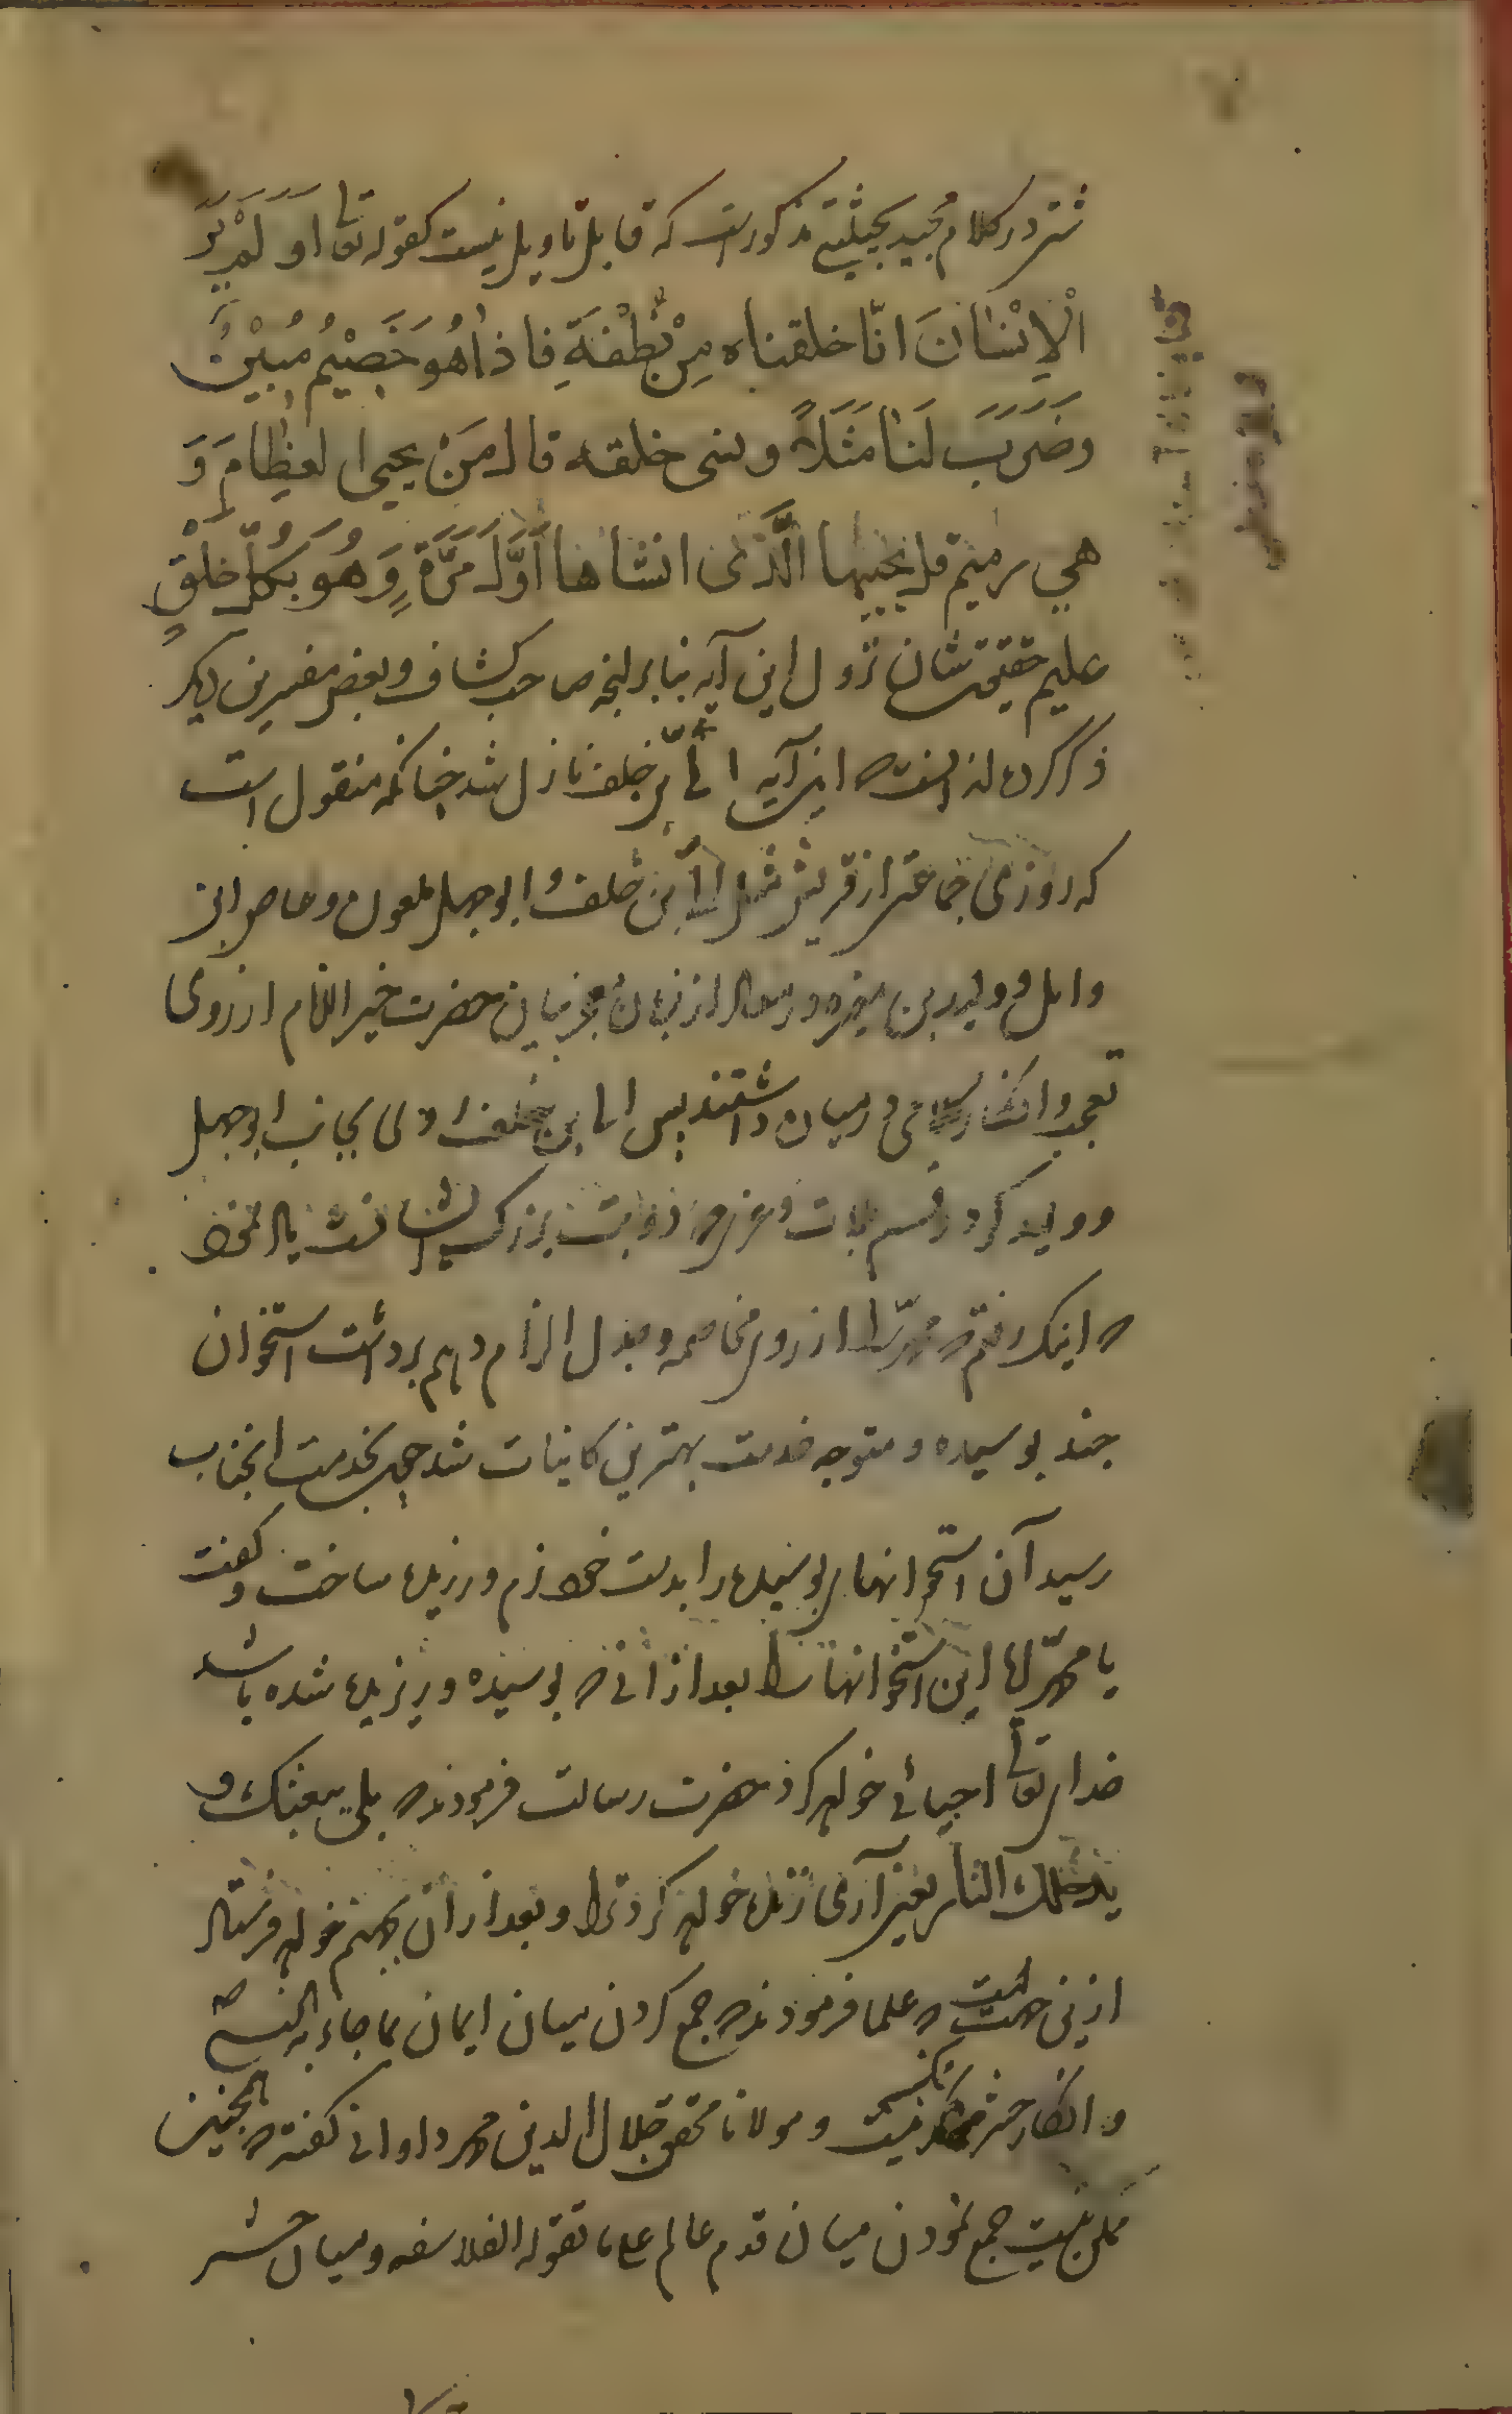 شتر در کلام مجید بحیثیتی مذکور است که قابل تاویل نیست کقوله تعا اَوَلَمْ یَرَ
الْاِنْسٰانَ انّا خلقناه مِنْ نُطْفَةٍ فاذا هُوَ خَصِیْمٌ مُبِیْنٌ
وَضَرَبَ لَنٰا مَثَلاً ونسی خلقه قال مَنْ یحیی العِظٰامَ وَ
هی رمیم قل یحییها الَّذی انشاها اَوَّلَ مَرَّةٍ وَهُوَ بِکُلِّ خَلْقٍ
علیم حقیقت شان نزول این آیه بنابر انچه صاحب کشاف و بعض مفسرین دیکر
ذکر کرده اند انست که این آیه در ابی بن خلف نازل شد چنانکه منقول است
که روزی جماعتی از قریش مثل ابی بن خلف و ابوجهل ملعون و عاص ابن
وایل و ولید بن مغیره در معاد از زبان معجز بیان حضرت خیر الانام از روی
تعجب و انکار کلامی در میان داشتند پس ابی بن خلف روی بجانب ابوجهل
و ولید کرد و قسم بلات و عزی که دو بت بزرک ایشانست یاد نمود
که اینک رفتم که محمّد را از روی مخاصمه و جدل الزام دهم برداشت استخوان
چند بوسیده و متوجه خدمت بهترین کاینات شد چون بخدمت انجناب
رسید آن استخوانهای بوسیده را بدست خود نرم و ریزیده ساخت و کفت
یا محمّد ایا این استخوانها را بعد از انی که بوسیده و ریزیده شده باشد
خدای تعالی احیائی خواهد کرد حضرت رسالت فرمودند که بلی یبعثک و
یدخلک النار یعنی آری زنده خواهد کرد ترا و بعد از ان بجهنم خواهد فرستاد
ازینجهت است که علما فرمودند که جمع کردن میان ایمان بما جاء به النبی ص
و انکار حشر ممکن نیست و مولانا محقق جلال الدین محمد دوانی کفته که همچنین
ممکن نیست جمع نمودن میان قدم عالم علی ما تقوله الفلاسفه و میان حشر